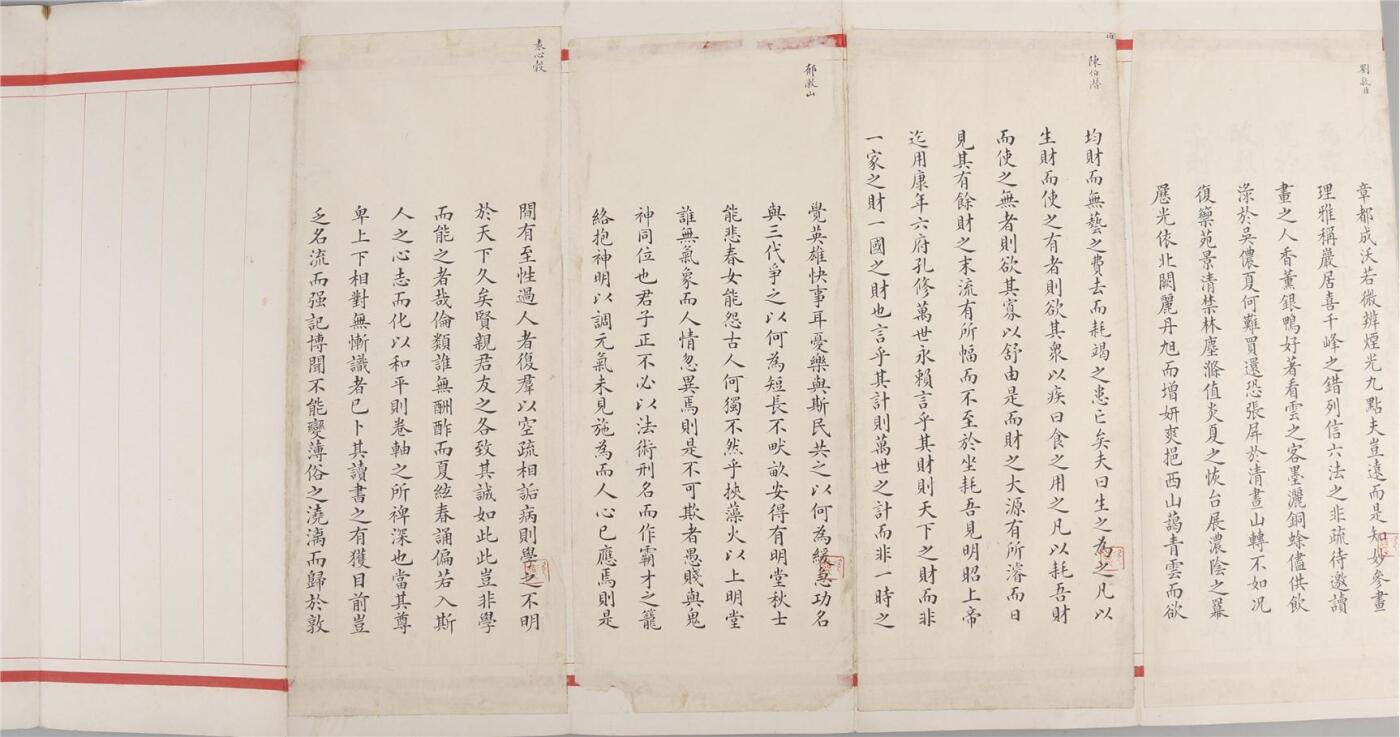 劉
章都成沃若微辨煙光九點夫豈遠而是知妙參畫
理雅稱巖居喜千峰之錯列信六法之非疏待邀讀
畫之人香薰銀鴨好著看雲之客墨灑銅蜂儘供飲
淥於吳儂夏何難買還恐張屏於清晝山轉不如況
復藥苑景清禁林塵滌值炎夏之恢台展濃陰之羃
歷光依北闕麗丹旭而增妍爽挹西山藹青雲而欲
陳伯潛
均財而無藝之費去而耗竭之患亡矣夫曰生之為之凡以
生財而使之有者則欲其衆以疾曰食之用之凡以耗吾財
而使之無者則欲其寡以舒由是而財之大源有所濬而日
見其有餘財之末流有所幅而不至於坐耗吾見明昭上帝
迄用康年六府孔修萬世永賴言乎其財則天下之財而非
一家之財一國之財也言乎其計則萬世之計而非一時之
郁漱山
覺英雄快事耳憂樂與斯民共之以何為緩急功名
與三代爭之以何為短長不畎畝安得有明堂秋士
能悲春女能怨古人何獨不然乎挾藻火以上明堂
誰無氣象而人情忽異焉則是不可欺者愚賤與鬼
神同位也君子正不必以法術刑名而作霸才之籠
絡抱神明以調元氣未見施為而人心已應焉則是
袁心穀
間有至性過人者復羣以空疏相詬病則學之不明
於天下久矣賢親君友之各致其誠如此此豈非學
而能之者哉倫類誰無酬酢而夏絃春誦偏若入斯
人之心志而化以和平則卷軸之所裨深也當其尊
卑上下相對無慚識者已卜其讀書之有獲目前豈
乏名流而强記博聞不能變薄俗之澆漓而歸於敦